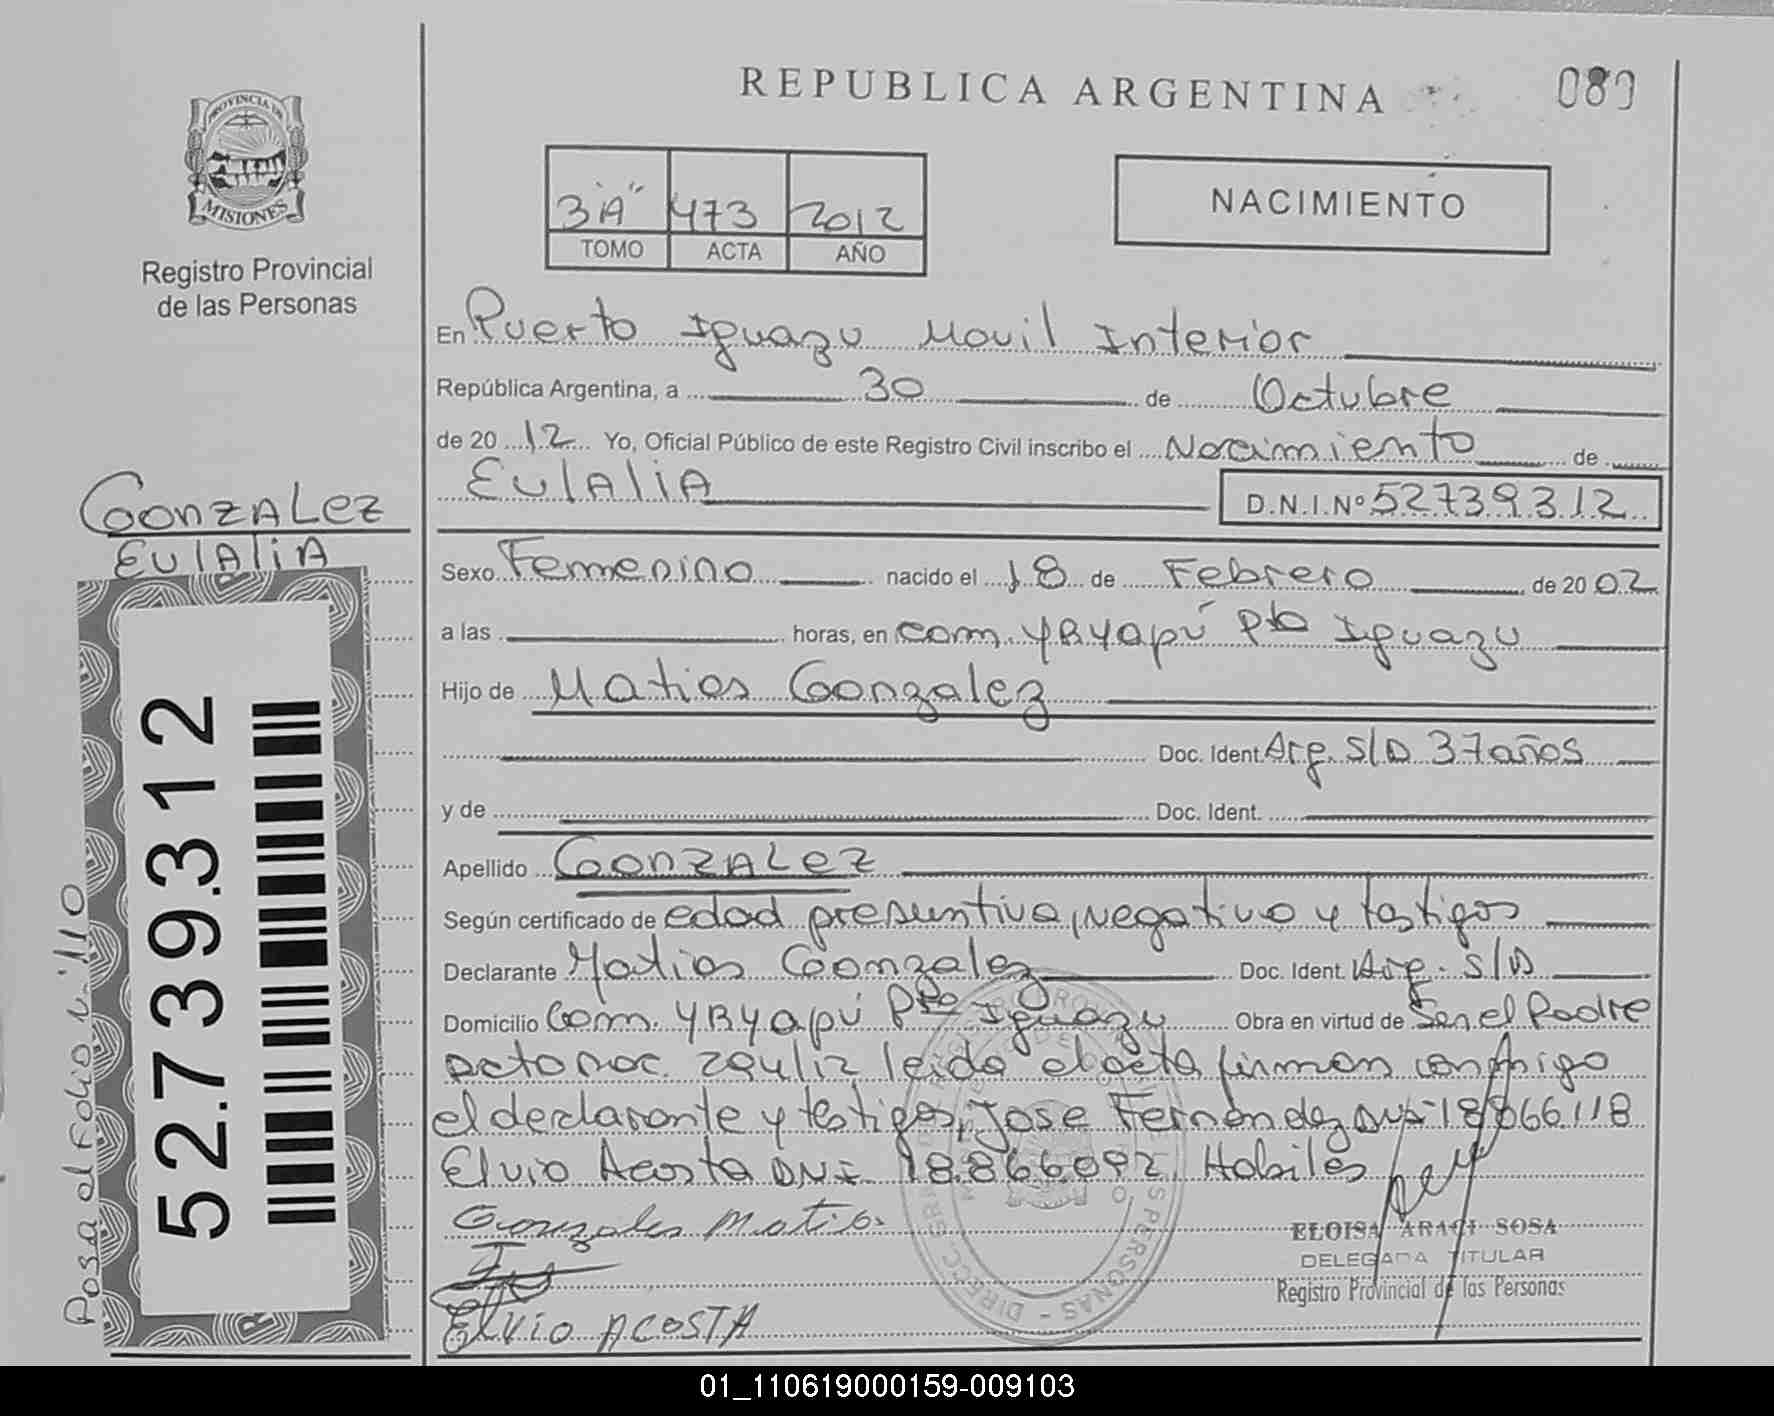 PROVINCIA DE
MISIONES
Registro Provincial
de las Personas
REPUBLICA ARGENTINA
080
3 "A" 473 2012
TOMO ACTA AÑO
NACIMIENTO
En Puerto Iguazu Movil Interior
República Argentina, a 30 de Octubre
de 2012 Yo, Oficial Público de este Registro Civil inscribo el Nacimiento de
EulAliA D.N.I.Nº 52739312
GonzALez
EulAliA
Sexo Femenino nacido el 18 de Febrero de 2002
a las horas, en com. YRYapú Pto Iguazu
Hijo de Matias Gonzalez
Doc. Ident. Arg. S/D 37 años
y de Doc. Ident.
Apellido GonzALez
Según certificado de edad presuntiva, negativo y testigos
Declarante Matias Gonzalez Doc. Ident. Arg. S/D
Domicilio Com. YRYapú Pto Iguazu Obra en virtud de Ser el Padre
acto Noc. 294/12 leida el acta firman conmigo
el declarante y testigos, Jose Fernandez DNI 18866118
Elvio Acosta DNI 18.866092 Habiles
Gonzales Matias
Elvio ACOSTA
ELOISA ARACI SOSA
DELEGADA TITULAR
Registro Provincial de las Personas
52.739.312
Pasa al Folio Nº 110
01_110619000159-009103